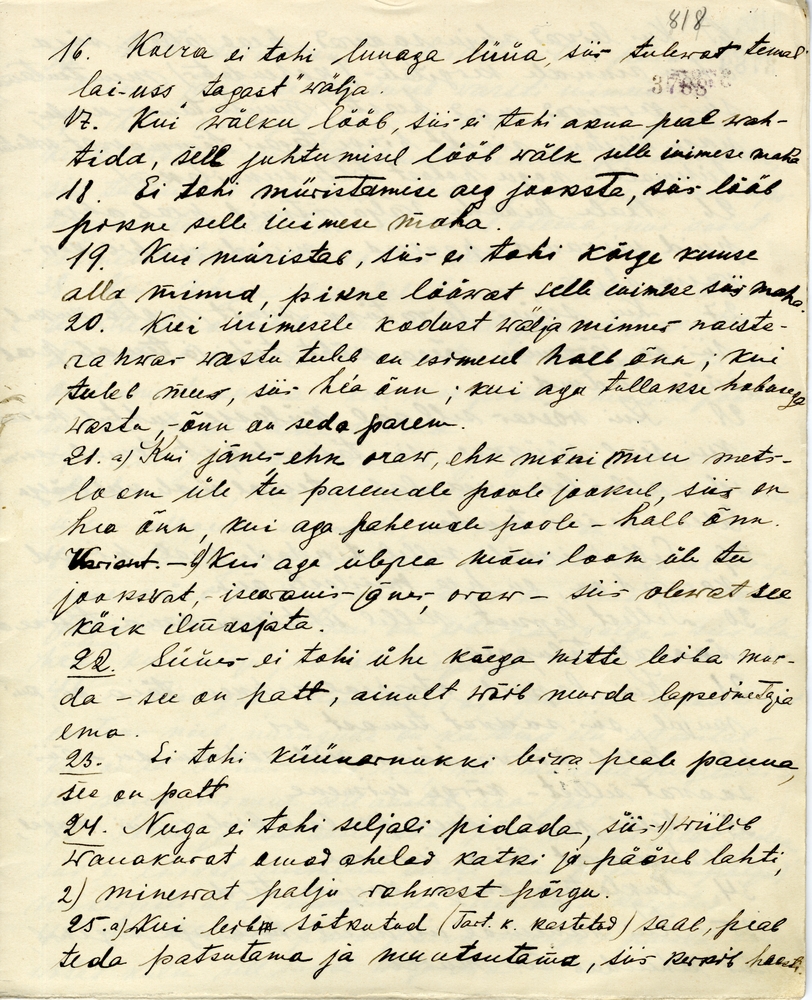 818
16. Koera ei tohi luuaga lüüa, siis tulewat temal
lai-uss "tagast" wälja.
17. Kui wälku lööb, siis ei tohi akna peal wah-
tida, sell juhtumisel lööb wälk selle inimese maha
18. Ei tohi müristamise aeg jooksta, siis lööb
pikne selle inimese maha.
19. Kui müristab, siis ei tohi kõrge kuuse
alla minna, pikne lööwat selle inimese siis maha.
20. Kui inimesele kodust wälja minnes naiste-
rahwas wastu tuleb on esimesel halb õnn; kui
tuleb mees, siis hea õnn; kui aga tullakse hobusega
wastu, - õnn on seda parem.
21. a) Kui jänes ehk oraw, ehk mõni muu mets-
loom üle tee paremale poole jookseb, siis on
hea õnn, kui aga pahemale poole - halb õnn.
Variant. - b) Kui aga ülepea mõni loom üle tee
jookswat, - isearanis jänes, oraw - siis olewat see
kõik ilmasjata.
22. Süües ei tohi ühe käega mitte leiba mur-
da - see on patt, ainult wõib murda lapseimetaja
ema.
23. Ei tohi küünarnukki leiwa peale panna,
see on patt
24. Nuga ei tohi seljali pidada, siis 1) wiilib
wanakurat omad ahelad katki ja pääseb lahti,
2) minewat palju rahwast põrgu.
25. a) Kui leib sõtkutud (Tart. k. kastetud) saab, peab
teda patsutama ja muutsutama, siis kerkib hästi.